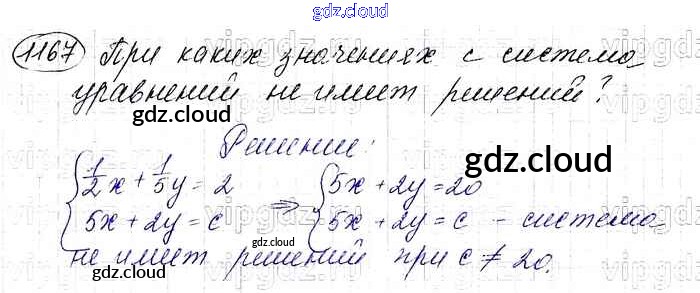 gdz.cloud
1167 При каких значениях c система
уравнений не имеет решений?
gdz.cloud
Решение:
gdz.cloud
{ 1/2 x + 1/5 y = 2 ⇒ { 5x + 2y = 20
{ 5x + 2y = c { 5x + 2y = c – система
не имеет решений при c ≠ 20.
gdz.cloud
gdz.cloud